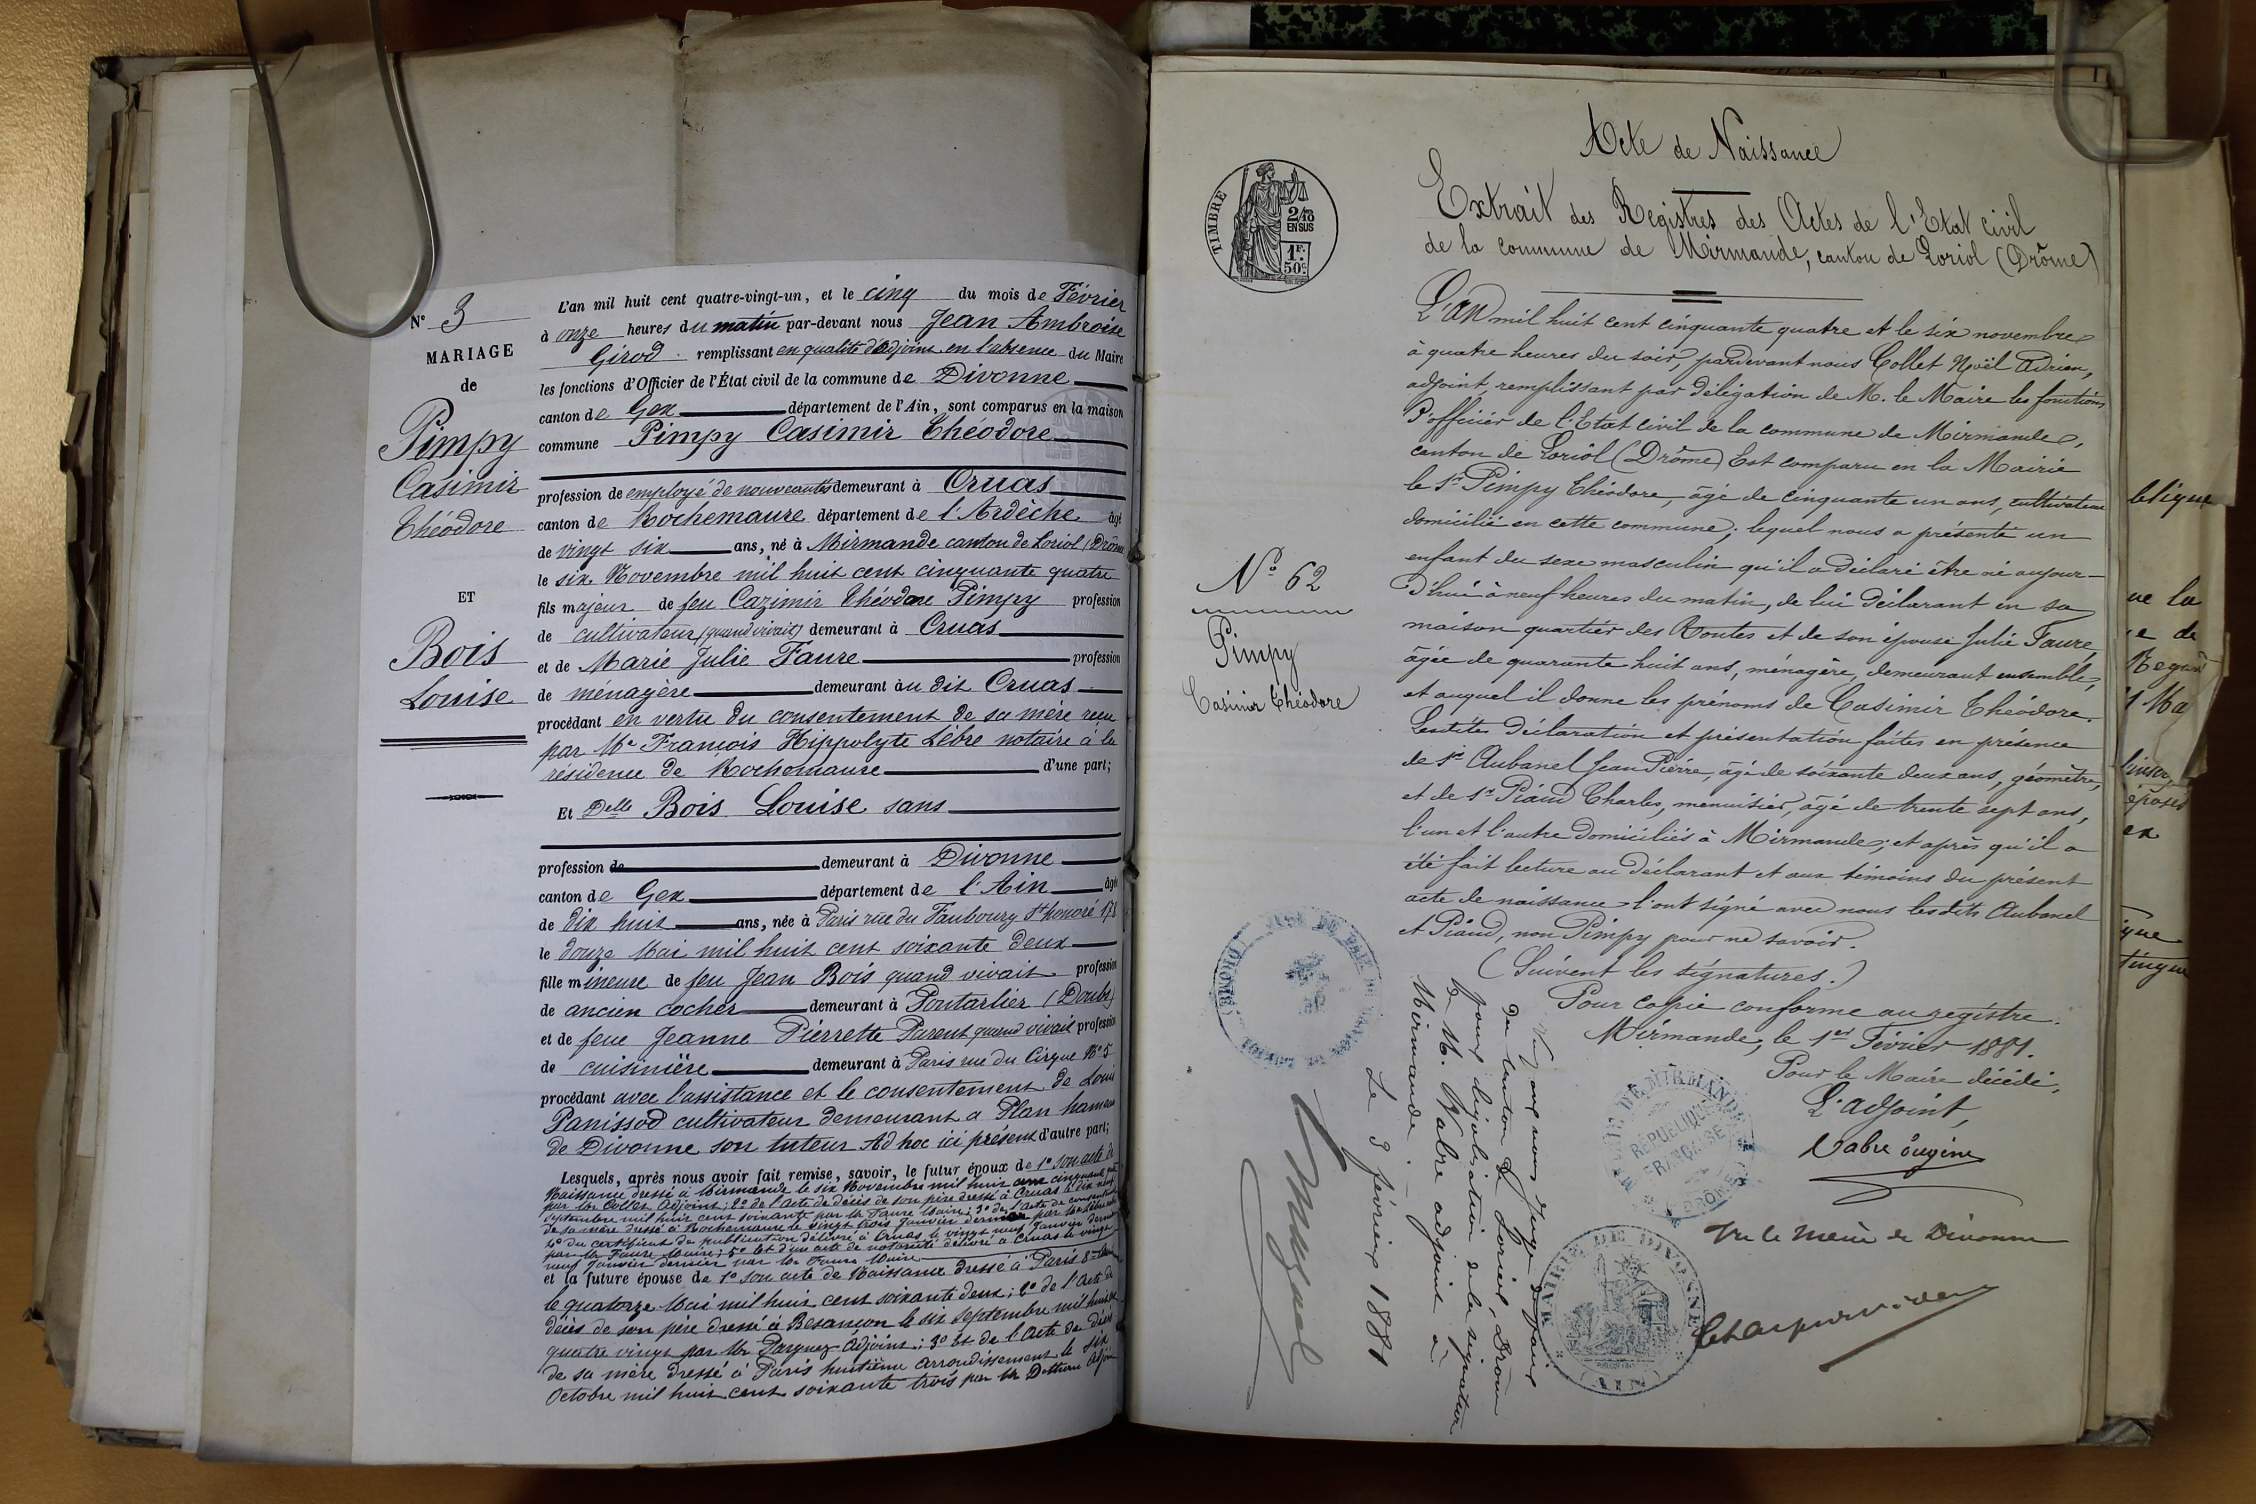 N° 3
MARIAGE
de
Pimpy
Casimir
Théodore
ET
Bois
Louise
L'an mil huit cent quatre-vingt-un, et le cinq du mois de Février
à onze heures du matin par-devant nous Jean Ambroise
Girod remplissant en qualité d'adjoint en l'absence du Maire
les fonctions d'Officier de l'État civil de la commune de Divonne
canton de Gex département de l'Ain, sont comparus en la maison
commune Pimpy Casimir Théodore
profession de employé de nouveautés demeurant à Cruas
canton de Rochemaure département de l'Ardèche âgé
de vingt six ans, né à Mirmande canton de Loriol (Drôme
le six Novembre mil huit cent cinquante quatre
fils majeur de feu Cazimir Théodore Pimpy profession
de cultivateur (quand vivait) demeurant à Cruas
et de Marie Julie Faure profession
de ménagère demeurant au dit Cruas
procédant en vertu du consentement de sa mère reçu
par Me François Hippolyte Lèbre notaire à la
résidence de Rochemaure d'une part;
Et Delle Bois Louise sans
profession de demeurant à Divonne
canton de Gex département de l'Ain âgée
de dix huit ans, née à Paris rue du Faubourg St honoré 178
le douze Mai mil huit cent soixante deux
fille mineure de feu Jean Bois quand vivait profession
de ancien cocher demeurant à Pontarlier (Doubs)
et de feue Jeanne Pierrette Parent quand vivait profession
de cuisinière demeurant à Paris rue du Cirque No 5
procédant avec l'assistance et le consentement de Louis
Panissod cultivateur demeurant à Plan hameau
de Divonne son tuteur Ad hoc ici présent d'autre part;
Lesquels, après nous avoir fait remise, savoir, le futur époux de 1° son acte de
Naissance dressé à Mirmande le six Novembre mil huit cent cinquante quatre
par Mr Collet Adjoint; 2° de l'acte de décès de son père dressé à Cruas le dix neuf
Septembre mil huit cent soixante par Mr Faure Maire; 3° de l'acte de consentement
de sa mère dressé à Rochemaure le vingt trois Janvier dernier par Me Lèbre notaire
4° du certificat de publication délivré à Cruas le vingt neuf Janvier dernier
par Mr Faure Maire; 5° et d'un acte de notoriété délivré à Cruas le vingt
neuf Janvier dernier par Mr Faure Maire
et la future épouse de 1° son acte de Naissance dressé à Paris 8me
le quatorze Mai mil huit cent soixante deux; 2° de l'acte de
décès de son père dressé à Besançon le six Septembre mil huit cent
quatre vingt par Mr Adjoint; 3° et de l'Acte de décès
de sa mère dressé à Paris huitième arrondissement le six
Octobre mil huit cent soixante trois par Mr Adjoint
Acte de Naissance
Extrait des Registres des Actes de l'Etat civil
de la commune de Mirmande, canton de Loriol (Drôme)
TIMBRE
2/10
EN SUS
1F.
50c.
N° 62
Pimpy
Casimir Théodore
L'AN mil huit cent cinquante quatre et le six novembre
à quatre heures du soir, pardevant nous Collet Noël Adrien,
adjoint, remplissant par délégation de M. le Maire les fonctions
d'officier de l'Etat civil de la commune de Mirmande,
canton de Loriol (Drôme) Est comparu en la Mairie
le Sr Pimpy Théodore, âgé de cinquante un ans, cultivateur
domicilié en cette commune; lequel nous a présenté un
enfant du sexe masculin qu'il a déclaré être né aujour-
d'hui à neuf heures du matin, de lui déclarant en sa
maison quartier des Routes et de son épouse Julie Faure,
âgée de quarante huit ans, ménagère, demeurant ensemble,
et auquel il donne les prénoms de Casimir Théodore.
Lesdites déclaration et présentation faites en présence
de Sr Aubanel Jean Pierre, âgé de soixante deux ans, géomètre,
et de Sr Piaud Charles, menuisier, âgé de trente sept ans,
l'un et l'autre domiciliés à Mirmande; et après qu'il a
été fait lecture au déclarant et aux témoins du présent
acte de naissance l'ont signé avec nous lesdits Aubanel
et Piaud, non Pimpy pour ne savoir.
(Suivent les signatures.)
Pour copie conforme au registre.
Mirmande, le 1er Février 1881.
Pour le Maire décédé,
L'adjoint,
Vabre Eugène
MAIRIE DE MIRMANDE
RÉPUBLIQUE
FRANÇAISE
(DRÔME)
Vu par nous Juge de paix
du canton de Loriol, Drôme
pour légalisation de la signature
de M. Vabre adjoint à
Mirmande.
Le 3 février 1881
Vu le Maire de Divonne
MAIRIE DE DIVONNE
(AIN)